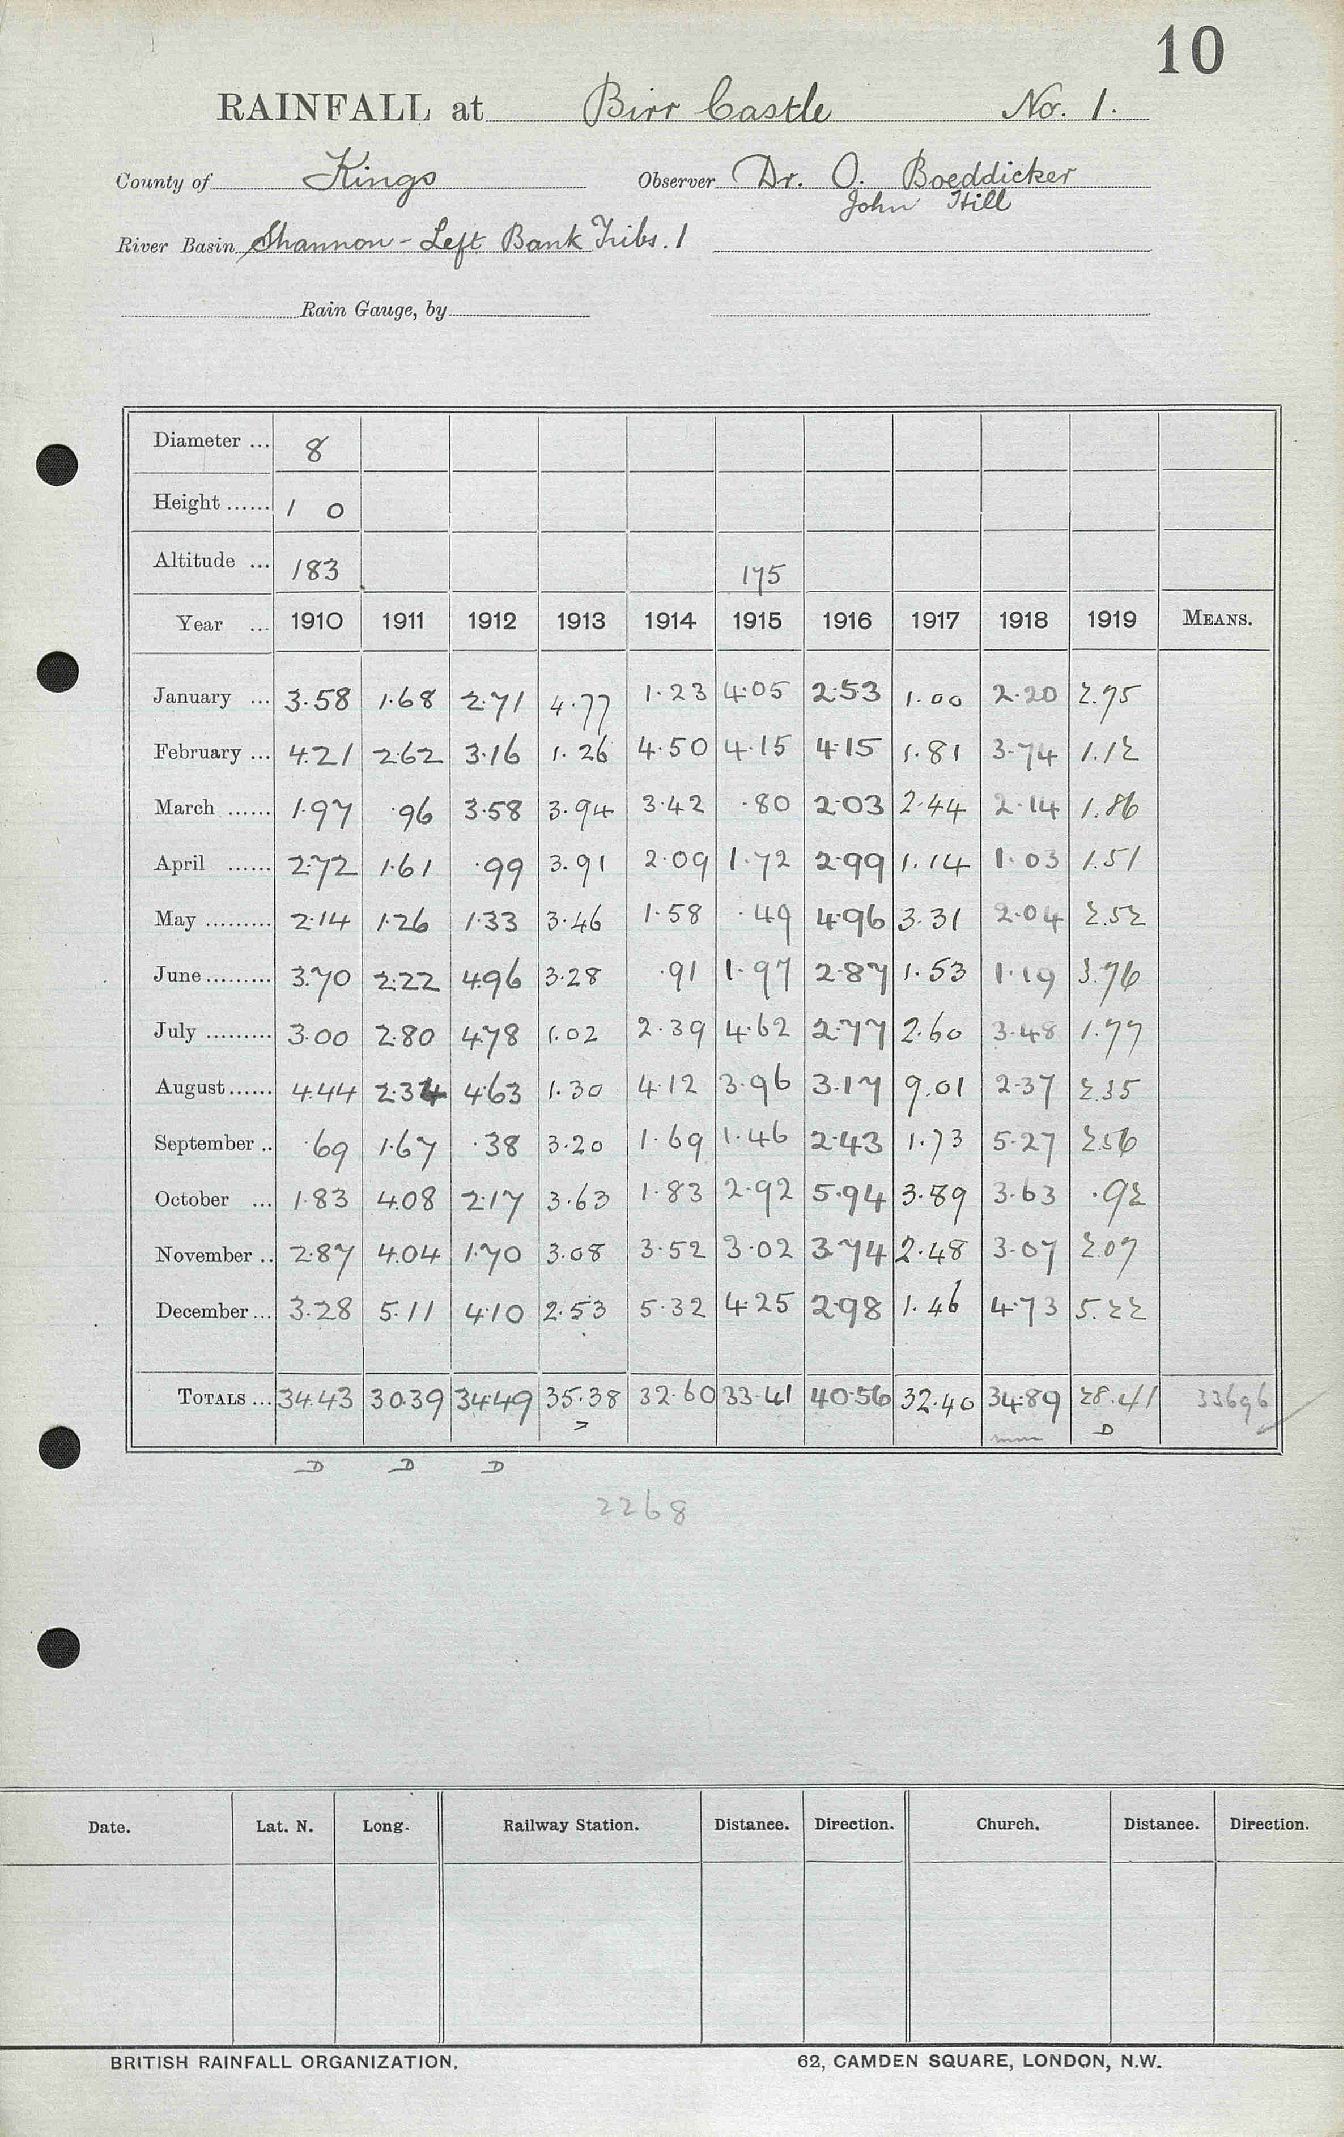 10
RAINFALL at Birr Castle No. 1.
County of Kings Observer Dr. O. Boeddicker
John Hill
River Basin Shannon - Left Bank Tribs. 1
Rain Gauge, by
Diameter ... 8
Height ...... 1 0
Altitude ... 183 175
Year ... 1910 1911 1912 1913 1914 1915 1916 1917 1918 1919 MEANS.
January ... 3.58 1.68 2.71 4.77 1.23 4.05 2.53 1.00 2.20 2.75
February ... 4.21 2.62 3.16 1.26 4.50 4.15 4.15 1.81 3.74 1.12
March ...... 1.97 .96 3.58 3.94 3.42 .80 2.03 2.44 2.14 1.86
April ...... 2.72 1.61 .99 3.91 2.09 1.72 2.99 1.14 1.03 1.51
May ......... 2.14 1.26 1.33 3.46 1.58 .49 4.96 3.31 2.04 2.52
June ......... 3.70 2.22 4.96 3.28 .91 1.97 2.87 1.53 1.19 3.76
July ......... 3.00 2.80 4.78 1.02 2.39 4.62 2.77 2.60 3.48 1.77
August ...... 4.44 2.34 4.63 1.30 4.12 3.96 3.17 9.01 2.37 2.35
September .. .69 1.67 .38 3.20 1.69 1.46 2.43 1.73 5.27 2.56
October ... 1.83 4.08 2.17 3.63 1.83 2.92 5.94 3.89 3.63 .92
November .. 2.87 4.04 1.70 3.08 3.52 3.02 3.74 2.48 3.07 2.07
December ... 3.28 5.11 4.10 2.53 5.32 4.25 2.98 1.46 4.73 5.22
TOTALS ... 34.43 30.39 34.49 35.38 32.60 33.41 40.56 32.40 34.89 28.41 33696
D
D D D
2268
Date. Lat. N. Long. Railway Station. Distance. Direction. Church. Distance. Direction.
BRITISH RAINFALL ORGANIZATION. 62, CAMDEN SQUARE, LONDON, N.W.